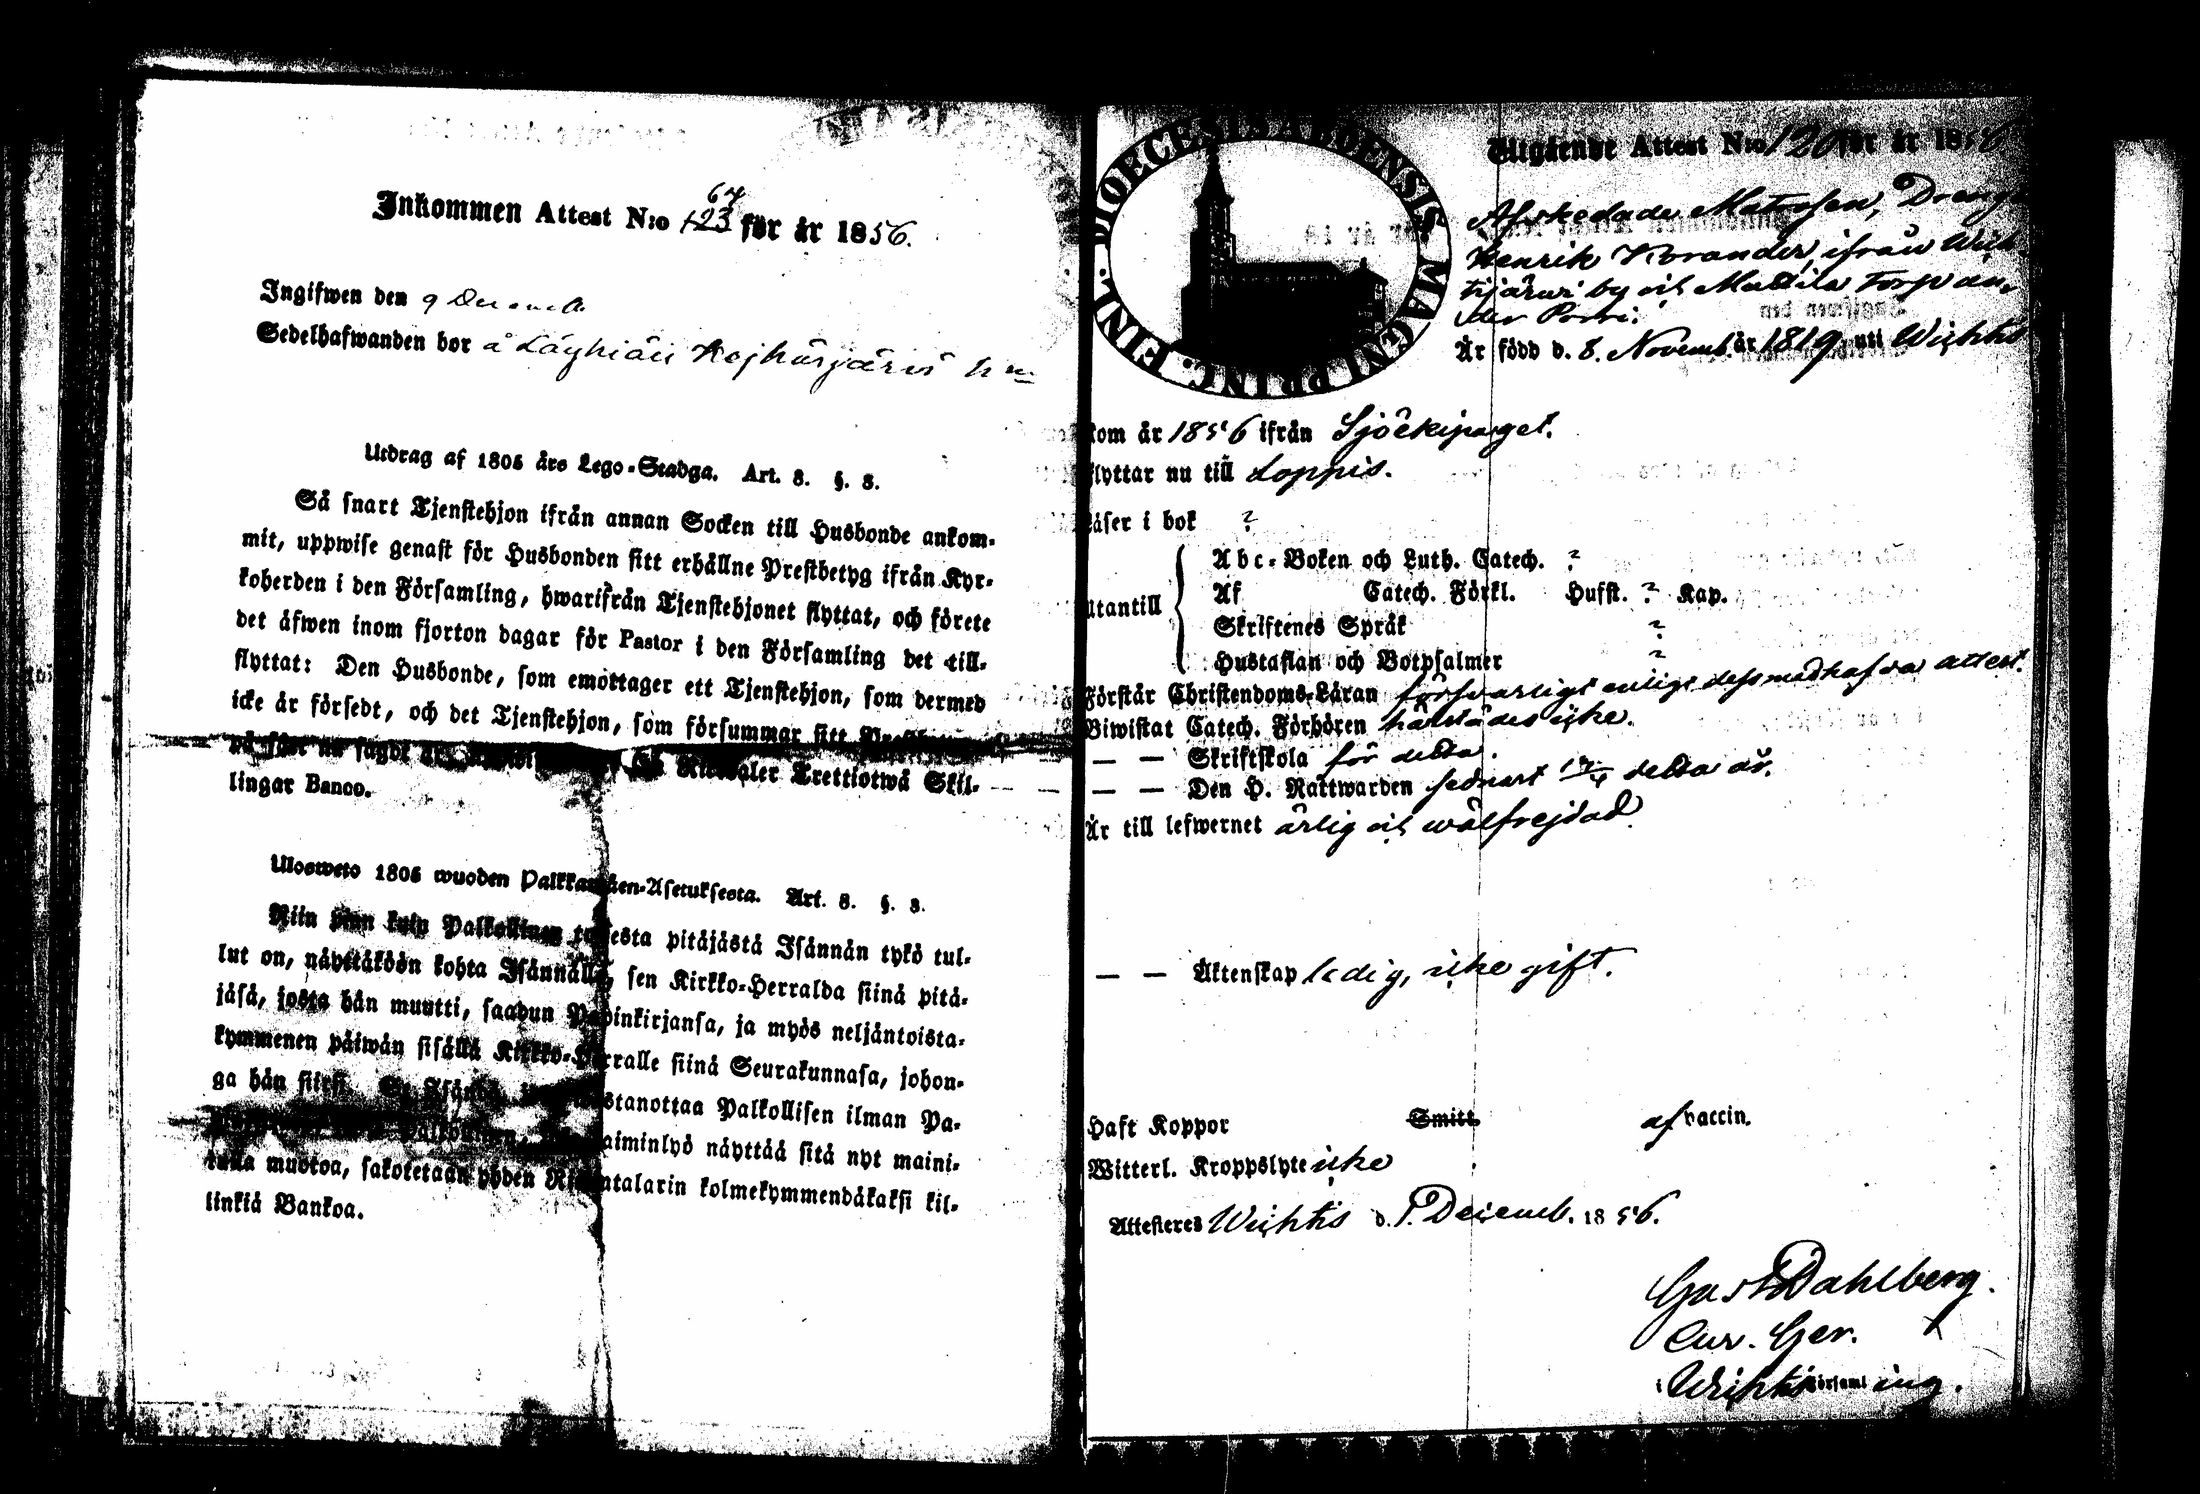 Inkommen Attest N:o 123 67 för år 1856.
Ingifwen den 9 Decemb.
Sedelhafwanden bor å Läyhiäis Kojhärjärvi
Utdrag af 1805 års Lego-Stadga. Art. 8. §. 8.
Så snart Tjenstehjon ifrån annan Socken till Husbonde ankom-
mit, uppwise genast för Husbonden sitt erhållne Prestbetyg ifrån Kyr-
koherden i den Församling, hwarifrån Tjenstehjonet flyttat, och förete
det äfwen inom fjorton dagar för Pastor i den Församling det till-
flyttat: Den Husbonde, som emottager ett Tjenstehjon, som dermed
icke är försedt, och det Tjenstehjon, som försummar sitt
på sätt nu sagdt är, Trettiotwå Skil-
lingar Banco.
Ulosweto 1805 wuoden Palkkawäen-Asetuksesta. Art. 8. §. 8.
Niin pian kuin Palkollinen toisesta pitäjästä Isännän tykö tul-
lut on, näyttäköön kohta Isännälle, sen Kirkko-Herralda siinä pitä-
jäsä, josta hän muutti, saadun Papinkirjansa, ja myös neljäntoista-
kymmenen päiwän sisällä Kirkko-Herralle siinä Seurakunnasa, johon-
ga hän siirsi. Se Isändä, wastanottaa Palkollisen ilman Pa-
Palkollinen, laiminlyö näyttää sitä nyt maini-
tulla muotoa, sakotetaan yhden Riksintalarin kolmekymmendäkaksi kil-
linkiä Bankoa.
DIOECESIS ABOENSIS MAGNI PRINC. FINL.
Utgående Attest N:o 120 för år 1856
Afskedade Matrosen, Dreng
Henrik Korander, ifrån Wich
tijärwi by och Mattila Torp un-
der Porri.
Är född d. 8. Novemb. år 1819 uti Wichtis
kom år 1856 ifrån Sjöekipaget.
flyttar nu till Loppis.
Läser i bok ?
Utantill
Abc-Boken och Luth. Catech. ?
Af Catech. Förkl. Hufst. ? Kap.
Skriftenes Språk ?
Hustaflan och Botpsalmer ?
Förstår Christendoms-Läran försvarligt enligt dess medhafda attest.
Biwistat Catech. Förhören härstädes icke.
— — Skriftskola för detta.
— — Den H. Nattwarden sednast detta år.
Är till lefwernet ärlig och wälfrejdad.
— — Äktenskap ledig, icke gift.
Haft Koppor Smitt. af vaccin.
Witterl. Kroppslyte icke
Attesteres Wichtis d. 1. Decemb. 1856.
Gust Dahlberg.
Cur. Ger.
i Wichtis Församling.